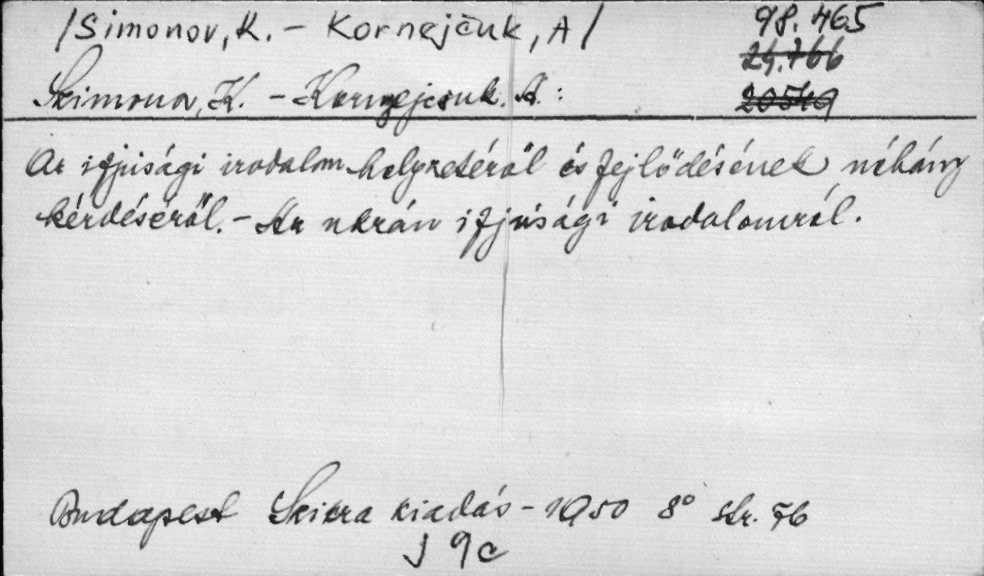 /Simonov, K. - Kornejčuk, A/ 98.465
24.766
Szimonov, K. - Kornyejcsuk. A.: 20549
Az ifjúsági irodalom helyzetéről és fejlődésének néhány
kérdéséről. - Az ukrán ifjúsági irodalomról.
Budapest Szikra kiadás - 1950 8° str. 76
J 9c